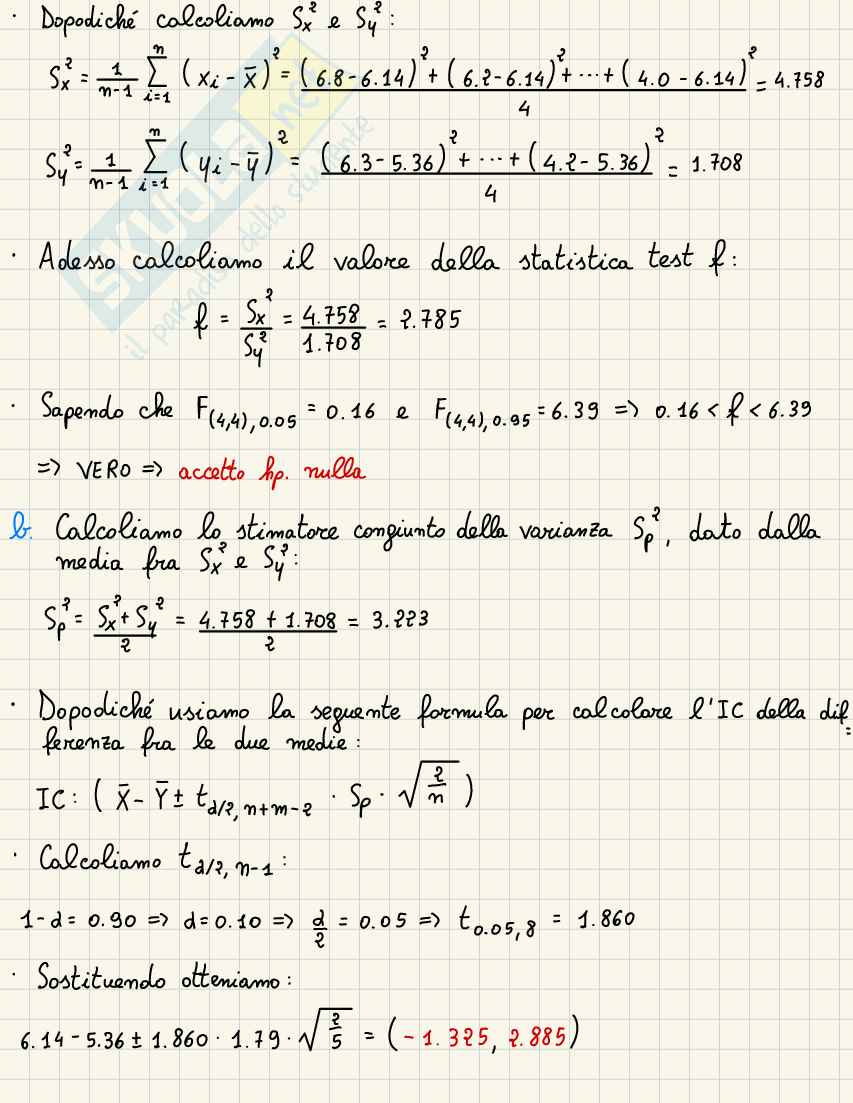 · Dopodiché calcoliamo Sx² e Sy²:
Sx² = 1/(n-1) Σ_{i=1}^{n} (xi - x̄)² = ((6.8-6.14)² + (6.2-6.14)² + ... + (4.0-6.14)²)/4 = 4.758
Sy² = 1/(n-1) Σ_{i=1}^{n} (yi - ȳ)² = ((6.3-5.36)² + ... + (4.2-5.36)²)/4 = 1.708
SKUOLA.net
il paradiso dello studente
· Adesso calcoliamo il valore della statistica test f:
f = Sx²/Sy² = 4.758/1.708 = 2.785
· Sapendo che F(4,4),0.05 = 0.16 e F(4,4),0.95 = 6.39 => 0.16 < f < 6.39
=> VERO => accetto hp. nulla
b. Calcoliamo lo stimatore congiunto della varianza Sp², dato dalla
media fra Sx² e Sy²:
Sp² = (Sx² + Sy²)/2 = (4.758 + 1.708)/2 = 3.223
· Dopodiché usiamo la seguente formula per calcolare l'IC della dif=
ferenza fra le due medie:
IC: (X̄ - Ȳ ± t_{α/2, n+m-2} · Sp · √(2/n))
· Calcoliamo t_{α/2, n-1}:
1-α = 0.90 => α = 0.10 => α/2 = 0.05 => t_{0.05,8} = 1.860
· Sostituendo otteniamo:
6.14 - 5.36 ± 1.860 · 1.79 · √(2/5) = (-1.325, 2.885)